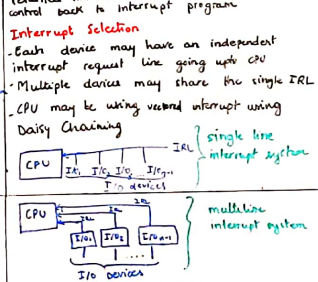 control back to interrupt program
Interrupt Selection
- Each device may have an independent
interrupt request line going upto CPU
- Multiple devices may share the single IRL
- CPU may be using vectored interrupt using
Daisy Chaining
CPU
IRL
I/O devices
single line
interrupt system
CPU
IRL
IRL
I/O1 I/O2 I/On-1
I/O Devices
multiline
interrupt system